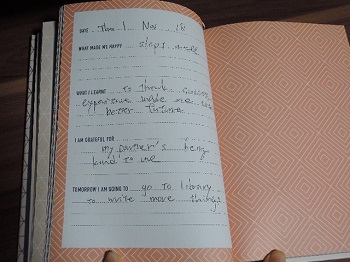 DATE Thu 1 Nov 18
WHAT MADE ME HAPPY sleep well
WHAT I LEARNT to think
experience made me
better future
I AM GRATEFUL FOR
my partner's being
kind to me
TOMORROW I AM GOING TO go to library
to write more things